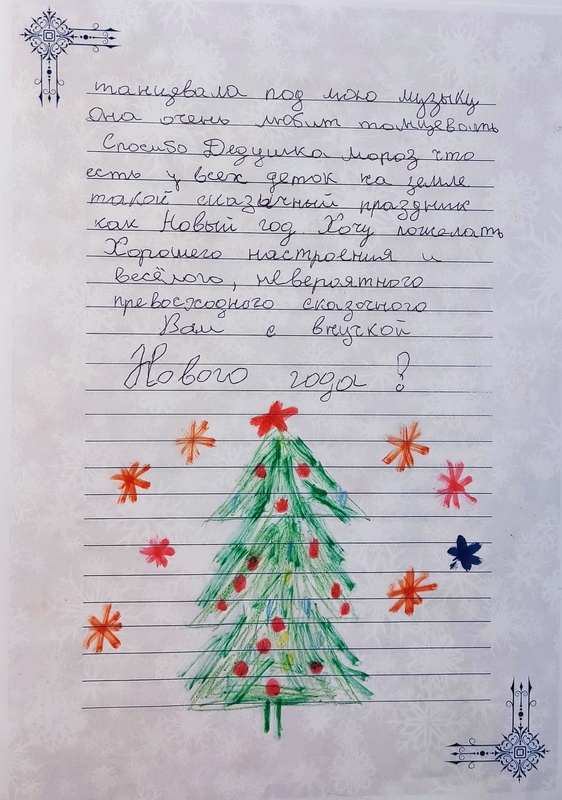 танцевала под мою музыку
Она очень любит танцевать
Спосибо Дедушка мороз что
есть у всех деток на земле
такой сказычный праздник
как Новый год Хочу пожелать
Хорошего настроения и
весёлого, невероятного
превосходного сказочного
Вам с внучкой
Нового года !